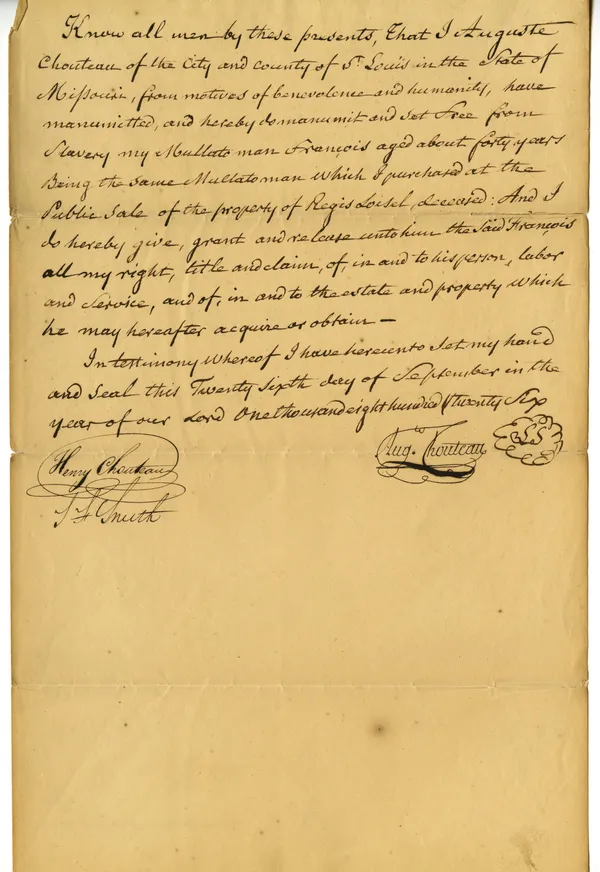 Know all men by these presents, That I Auguste
Chouteau of the City and county of St. Louis in the State of
Missouri, from motives of benevolence and humanity, have
manumitted, and hereby do manumit and set Free from
Slavery my Mullato man François aged about forty years
Being the same Mullato man which I purchased at the
Public Sale of the property of Regis Loisel, deceased: And I
do hereby give, grant and release unto him the Said François
all my right, title and claim, of, in and to his person, labor
and Service, and of, in and to the estate and property which
he may hereafter acquire or obtain —
In testimony whereof I have hereunto Set my hand
and seal this Twenty Sixth day of September in the
year of our Lord One thousand eight hundred & twenty Six
Augte Chouteau
Henry Chouteau
Smith